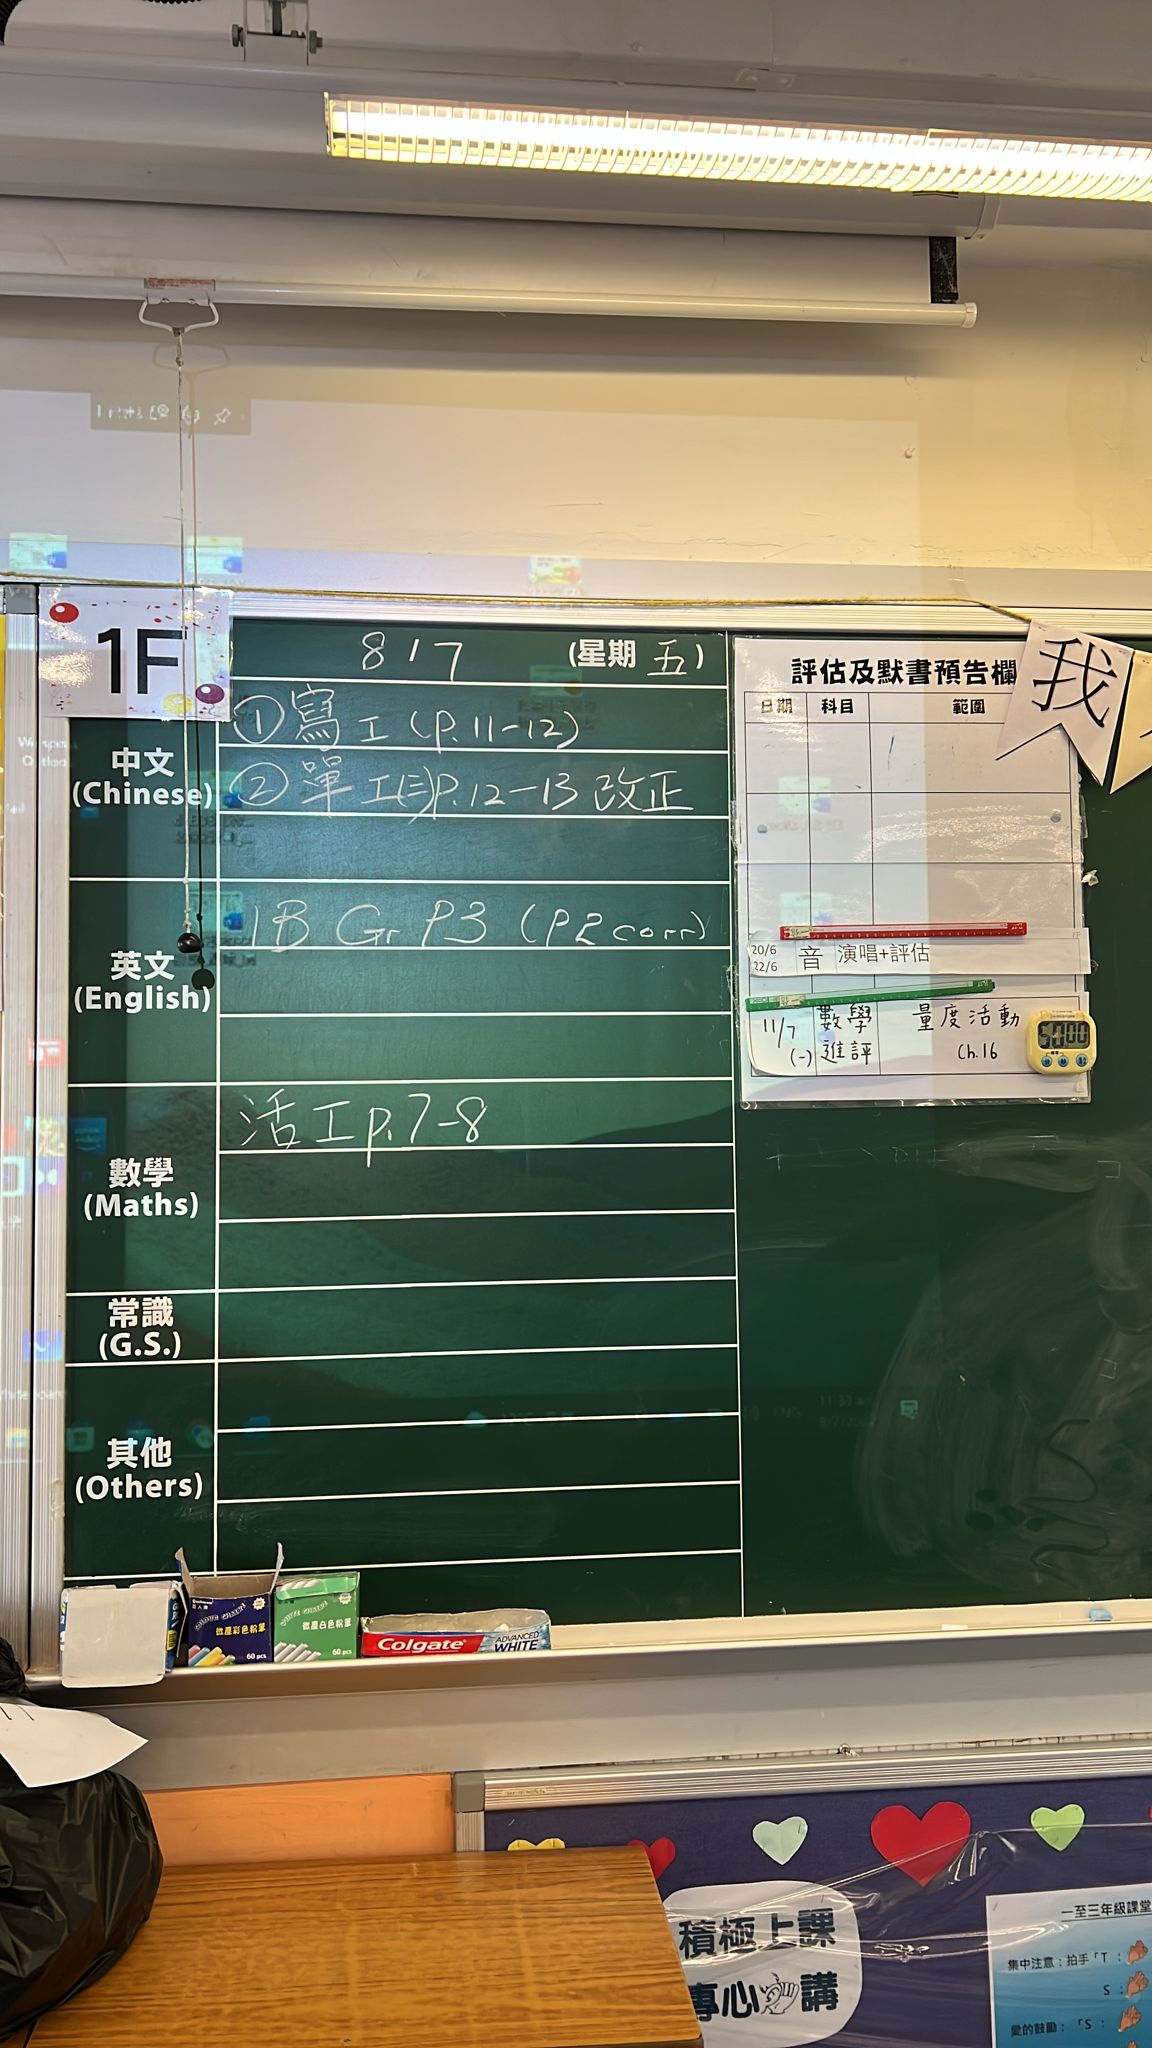 1F
8/7 (星期 五)
中文
(Chinese)
① 寫工 (P.11-12)
② 單工(三)P.12-13 改正
英文
(English)
1B Gr P3 (P2 corr)
數學
(Maths)
活工p.7-8
常識
(G.S.)
其他
(Others)
評估及默書預告欄
日期 科目 範圍
20/6
22/6 音 演唱+評估
11/7 (一) 數學進評 量度活動 Ch.16
我
微塵彩色粉筆
60 pcs
微塵白色粉筆
60 pcs
Colgate ADVANCED WHITE
積極上課
專心 講
一至三年級課堂
集中注意：拍手「T：
S：
愛的鼓勵：「S：